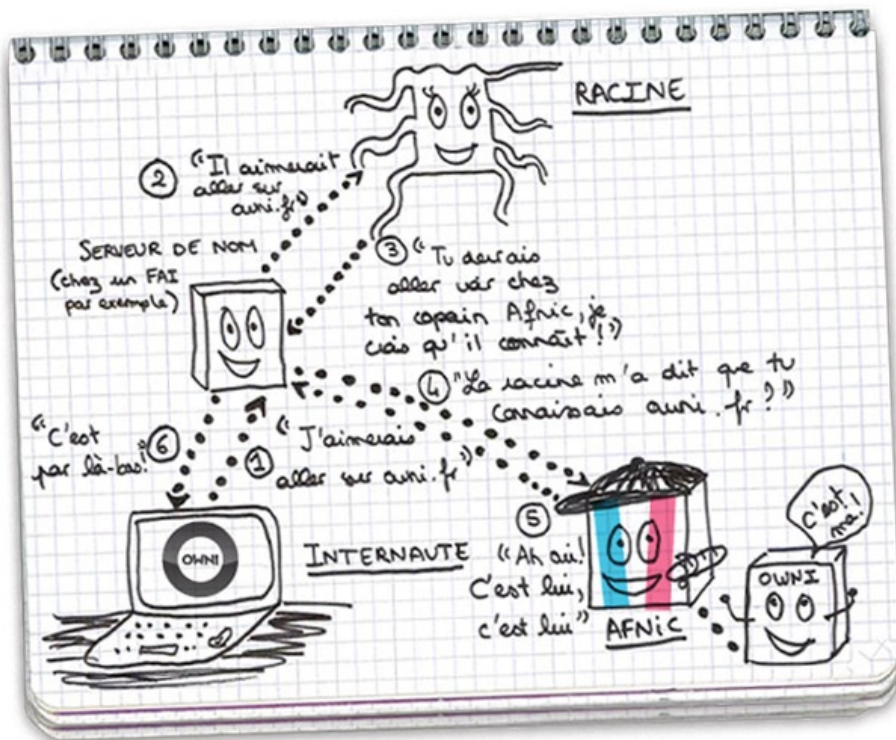 RACINE
② "Il aimerait
aller sur
owni.fr"
SERVEUR DE NOM
(chez un FAI
par exemple)
③ "Tu devrais
aller voir chez
ton copain Afnic, je
crois qu'il connaît !"
④ "La racine m'a dit que tu
connaissais owni.fr ?"
"C'est
par là-bas!" ⑥
① "J'aimerais
aller sur owni.fr"
OWNI
INTERNAUTE
⑤
"Ah oui!
C'est lui,
c'est lui"
AFNiC
C'est
moi !
OWNI